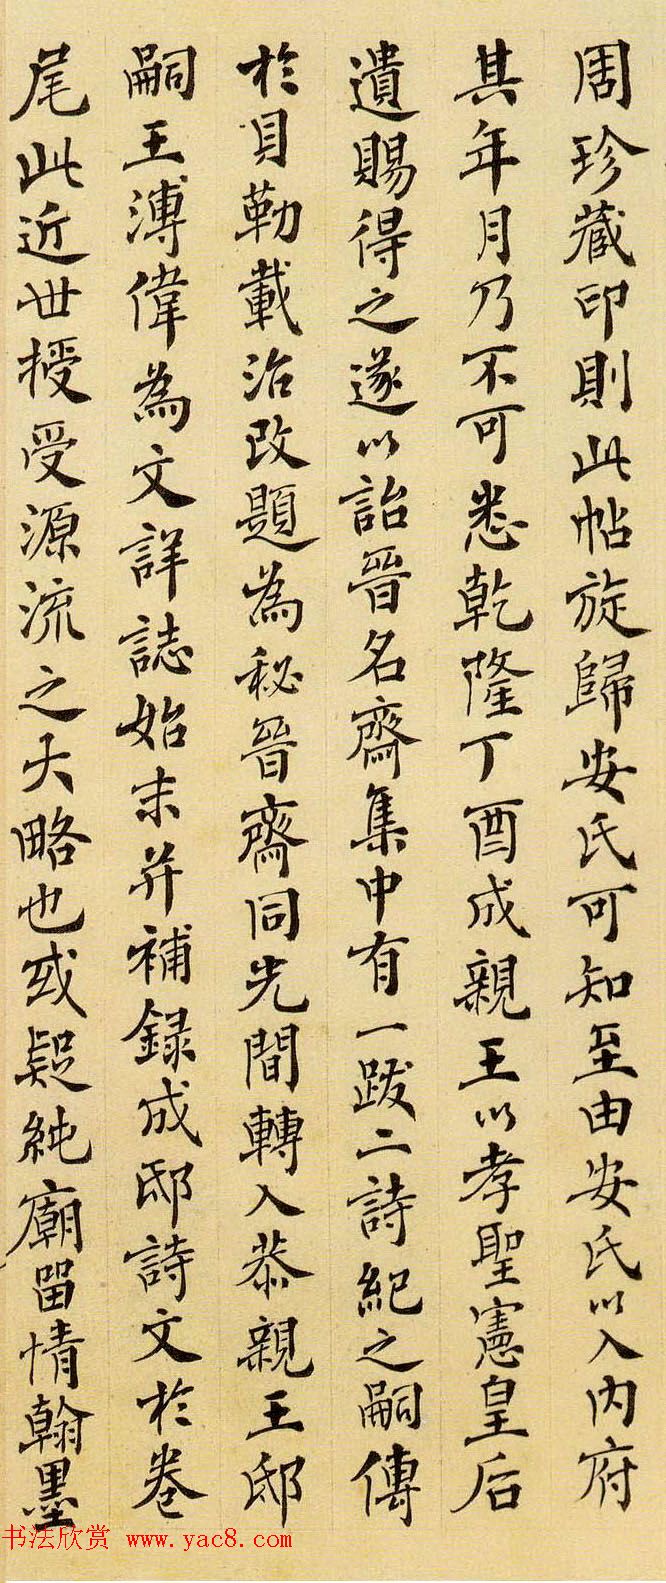 周珍藏印則此帖旋歸安氏可知至由安氏以入內府
其年月乃不可悉乾隆丁酉成親王以孝聖憲皇后
遺賜得之遂以詒晉名齋集中有一跋二詩紀之嗣傳
於貝勒載治改題為秘晉齋同光間轉入恭親王邸
嗣王溥偉為文詳誌始末并補錄成邸詩文於卷
尾此近世授受源流之大略也或疑純廟留情翰墨
书法欣赏 www.yac8.com